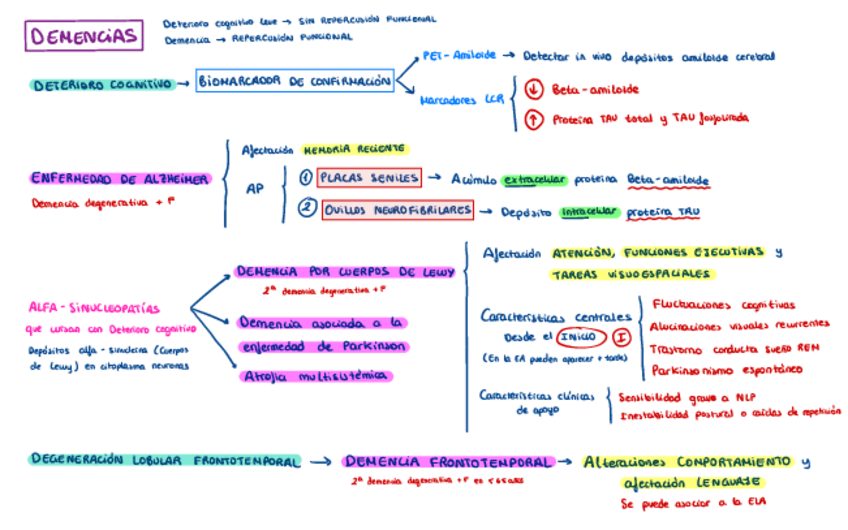 DEMENCIAS
Deterioro cognitivo leve → SIN REPERCUSIÓN FUNCIONAL
Demencia → REPERCUSIÓN FUNCIONAL
DETERIORO COGNITIVO → BIOMARCADOR DE CONFIRMACIÓN
PET-Amiloide → Detectar in vivo depósitos amiloide cerebral
Marcadores LCR
↓ Beta-amiloide
↑ Proteína TAU total y TAU fosforilada
ENFERMEDAD DE ALZHEIMER
Demencia degenerativa + F
Afectación MEMORIA RECIENTE
AP
1 PLACAS SENILES → Acúmulo extracelular proteína Beta-amiloide
2 OVILLOS NEUROFIBRILARES → Depósito intracelular proteína TAU
ALFA-SINUCLEOPATÍAS
que cursan con Deterioro cognitivo
Depósitos alfa-sinucleína (Cuerpos
de Lewy) en citoplasma neuronas
DEMENCIA POR CUERPOS DE LEWY
2ª demencia degenerativa + F
Demencia asociada a la
enfermedad de Parkinson
Atrofia multisistémica
Afectación ATENCIÓN, FUNCIONES EJECUTIVAS y
TAREAS VISUOESPACIALES
Características centrales
Desde el INICIO I
(En la EA pueden aparecer + tarde)
Fluctuaciones cognitivas
Alucinaciones visuales recurrentes
Trastorno conducta sueño REM
Parkinsonismo espontáneo
Características clínicas
de apoyo
Sensibilidad grave a NLP
Inestabilidad postural o caídas de repetición
DEGENERACIÓN LOBULAR FRONTOTEMPORAL → DEMENCIA FRONTOTEMPORAL → Alteraciones COMPORTAMIENTO y
afectación LENGUAJE
2ª demencia degenerativa + F en < 65 años
Se puede asociar a la ELA